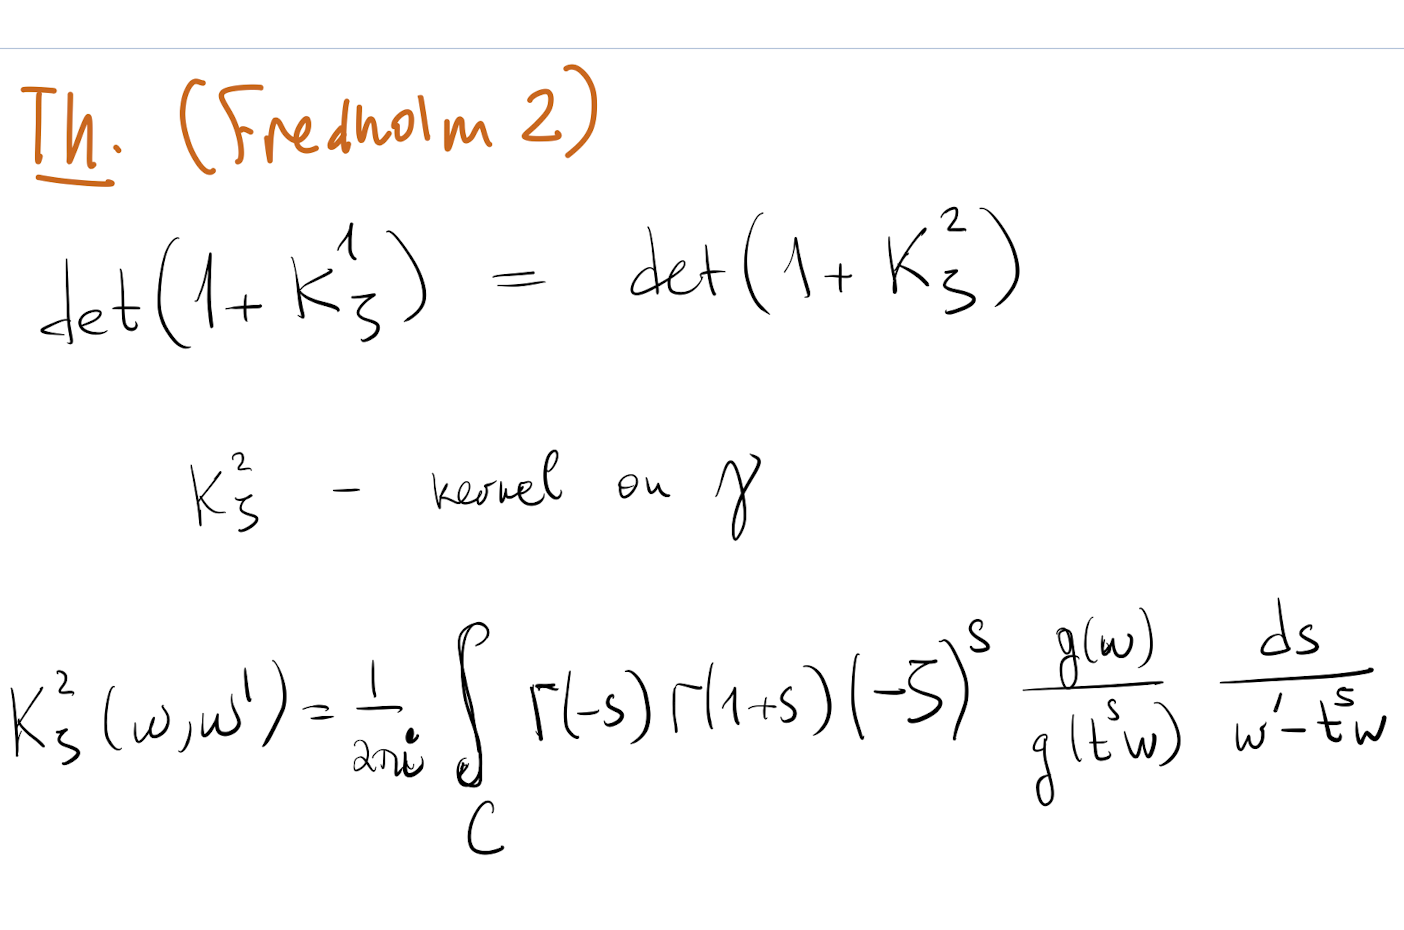 Th. (Fredholm 2)
det(1 + K¹_ζ) = det(1 + K²_ζ)
K²_ζ - kernel on γ
K²_ζ(w, w') = 1/(2πi) ∫_C Γ(-s) Γ(1+s) (-ζ)^s g(w)/g(t^s w) ds/(w' - t^s w)